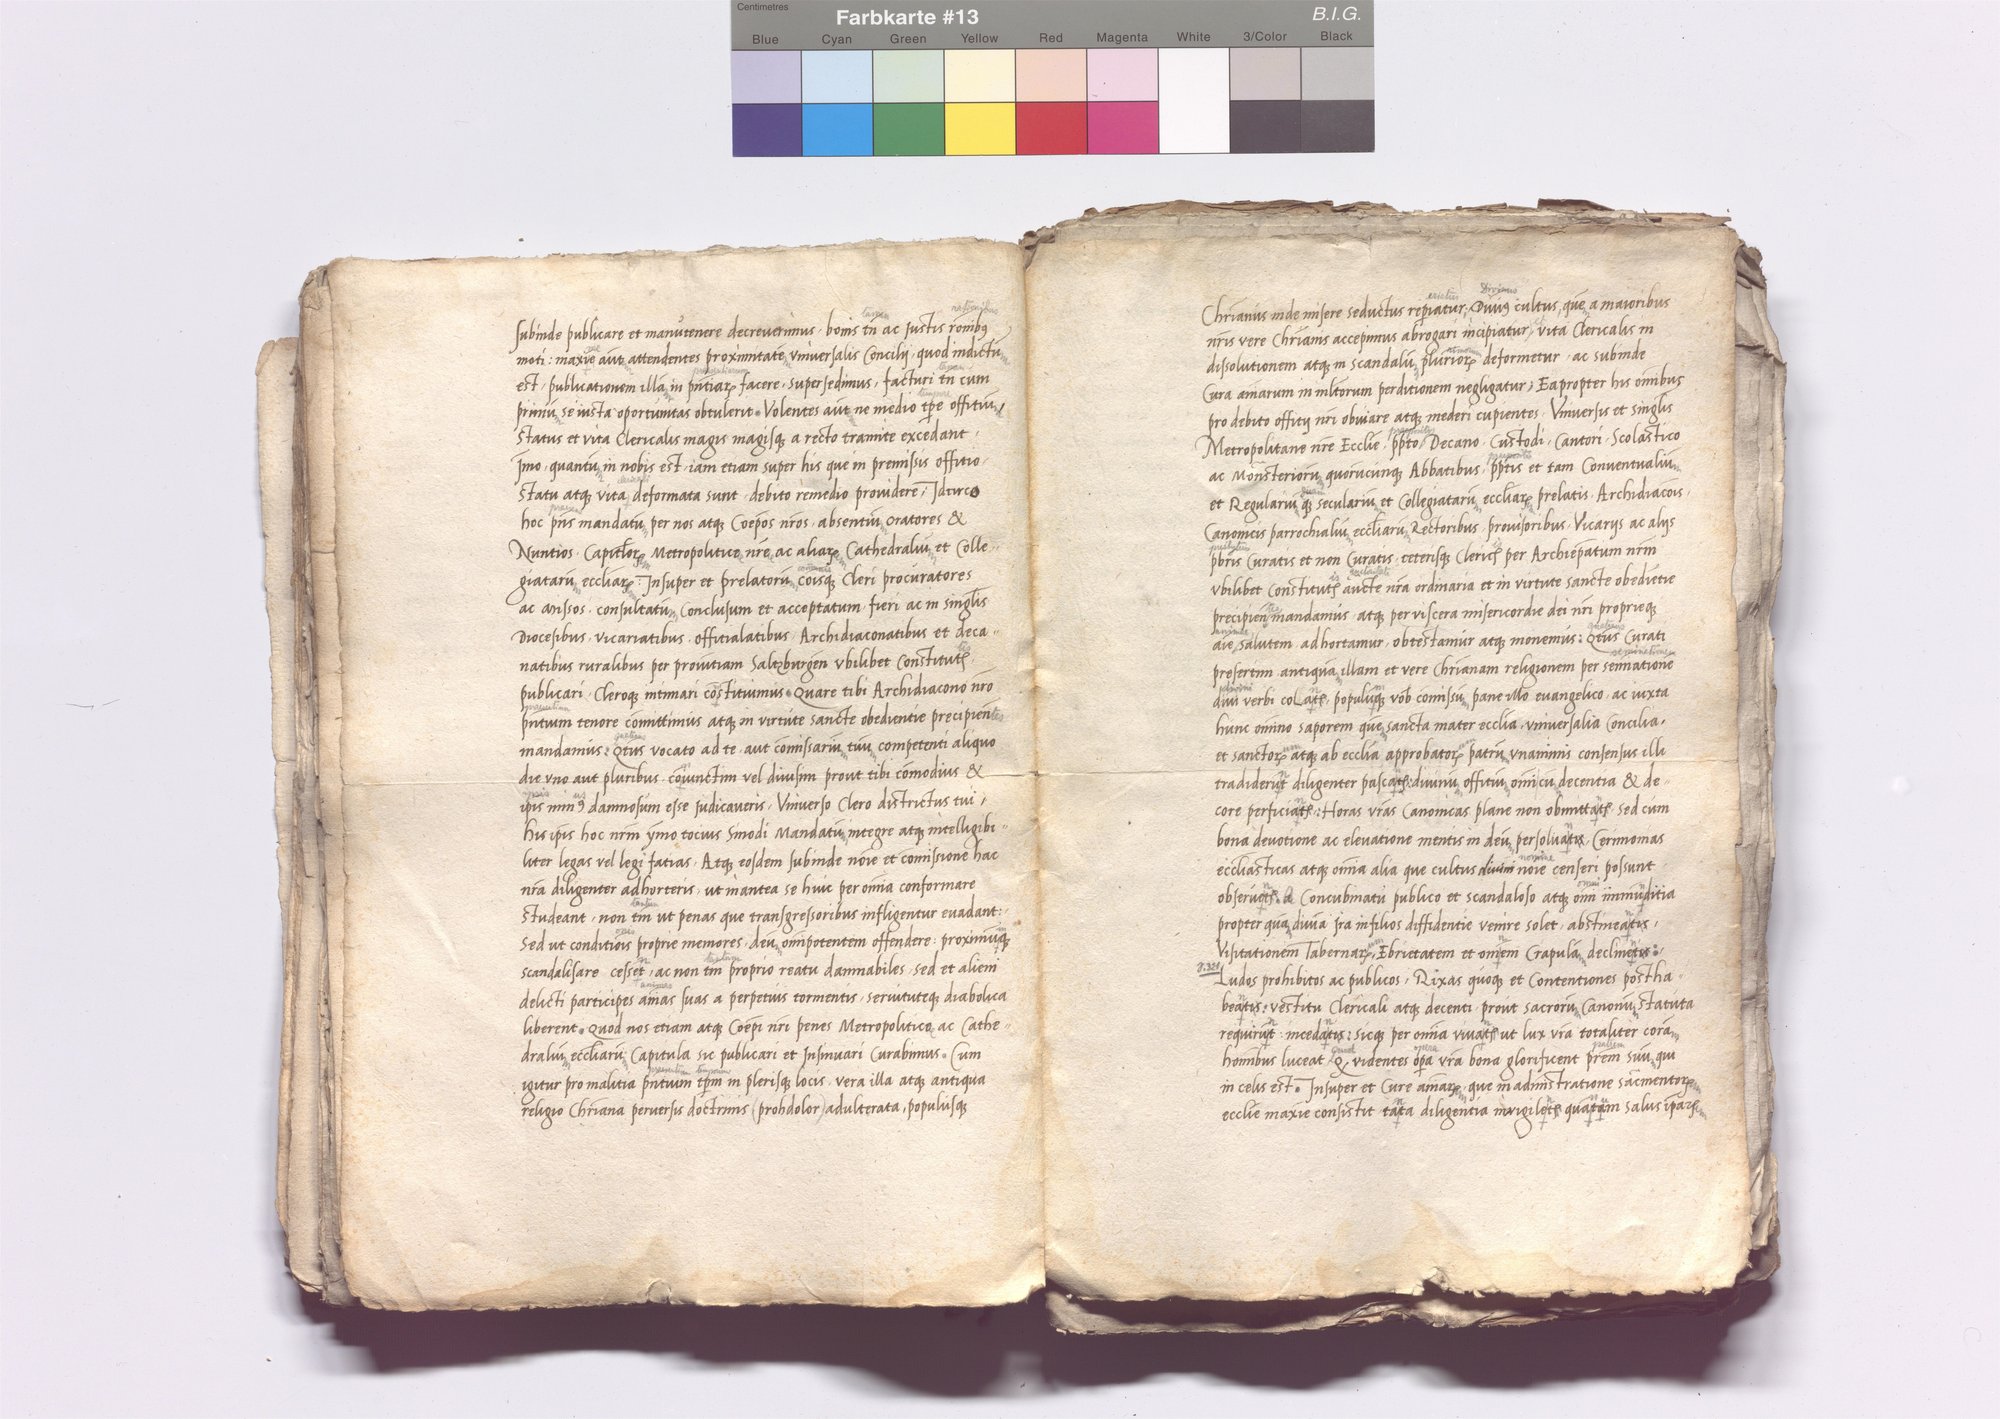 Centimetres
Farbkarte #13
B.I.G.
Blue Cyan Green Yellow Red Magenta White 3/Color Black
subinde publicare et manutenere decreverimus. bonis tn̄ ac justis
moti: maxīe aūt attendentes proximitatē vniversalis Concilij quod indictū
est, publicationem illā in facere, supersedimus, facturi tn̄ cum
primū se iusta oportunitas obtulerit. Volentes aūt ne medio tp̄e offitiū,
status et vita Clericalis magis magisq̧ a recto tramite excedant,
ȳmo, quantū in nobis est, iam etiam super his que in premissis offitio,
statu atq̧ vita deformata sunt, debito remedio providere, Idcirco
hoc pn̄s mandatū per nos atq̧ Coepos nr̄os, absentiū oratores &
Nuntios, Metropolitice nr̄e ac aliaꝝ Cathedraliū et Colle-
giatarū eccliaꝝ: Insuper et prelatorū Cleri procuratores
ac consultatū, Conclusum et acceptatum fieri ac in singlīs
Diocesibus, vicariatibus, offitialatibus, Archidiaconatibus et deca-
natibus ruralibus per provītiam Saltzburgen̄ vbilibet
publicari, Cleroq̧ intimari cōstituimus. Quare tibi Archidiacono nr̄o
pn̄tium tenore comittimus atq̧ in virtute sancte obedientie precipien̄
mandamus: vocato ad te aut comissariū tuū competenti aliquo
die vno aut pluribus, vel divisim prout tibi comodius &
damnosum esse judicaveris, Vniverso Clero districtus tui,
his ip̄is hoc nr̄m ȳmo tocius Sinodi Mandatū, integre atq̧ intelligibi-
liter legas vel legi fatias. Atq̧ eosdem subinde noīe et comissione hac
nr̄a diligenter adhorteris, ut inantea se huic per om̄ia conformare
studeant, non tm̄ ut penas que transgressoribus infligentur evadant:
Sed ut proprie memores, deū om̄ipotentem offendere: proximūq̧
scandalisare ac non tm̄ proprio reatu damnabiles, sed et alieni
delicti participes aīas suas a perpetuis tormentis, servituteq̧ diabolica
liberent. Quod nos etiam atq̧ Coep̄i nr̄i penes Metropolitice ac Cathe-
draliū eccliarū Capitula sic publicari et Insinuari Curabimus. Cum
igitur pro malitia pn̄tium in plerisq̧ locis, vera illa atq̧ antiqua
religio Chriāna perversis doctrinis (prohdolor) adulterata, populusq̧
Chriānus inde misere seductus reperiatur, cultus, que a maioribus
nr̄is vere Chriānis accepimus abrogari incipiatur, vita Clericalis in
dissolutionem atq̧ in scandalū plurioꝝ deformetur, ac subinde
Cura aīarum in mltorum perditionem negligatur; Eapropter his om̄ibus
pro debito offitij nr̄i obviare atq̧ mederi cupientes. Vniversis et singlīs
Metropolitane nr̄e Ecclīe, Decano, Custodi, Cantori, Scolastico
ac Mōnsteriorū quorūcunq̧ Abbatibus, et tam Conventualiū
et Regulariū q̧ seculariū et Collegiatarū eccliaꝝ prelatis, Archidiacoīs,
Canonicis parrochialiū eccliarū, Rectoribus, provisoribus, Vicarijs ac alijs
Curatis et non Curatis, ceterisq̧ per Archiep̄atum nr̄m
vbilibet aucte nr̄a ordinaria et in virtute sancte obedietie
precipien̄ mandamus, atq̧ per viscera misericordie dei nr̄i proprieq̧
salutem adhortamur, obtestamur atq̧ monemus: Curati
presertim antiquā illam et vere Chriānam religionem per
verbi populūq̧ vob̄ comissū pane evangelico, ac iuxta
hunc om̄ino saporem que sancta mater ecclīa, vniversalia Concilia,
et sanctoꝝ atq̧ ab ecclīa approbatoꝝ patrū vnanimis consensus illi
tradiderūt diligenter divinū offitiū, decentia & de-
core Horas vr̄as Canonicas plane non sed cum
bona devotione ac elevatione mentis in deū Cerimonias
ecclīasticas atq̧ om̄ia alia que cultus divini noīe censeri possunt
A Concubinatu publico et scandaloso atq̧ om̄i immūditia
propter quā divina ira in filios diffidentie venire solet, abstineatis,
Visitationem Tabernaꝝ, Ebrietatem et om̄em Crapulā declinetis:
Ludos prohibitos ac publicos, Rixas quoq̧ et Contentiones postha-
beatis: vestitu Clericali atq̧ decenti prout sacrorū Canonū statuta
requirūt: incedatis: sicq̧ per om̄ia ut lux vr̄a totaliter corā
hoībus luceat videntes op̄a vr̄a bona glorificent pr̄em suū qui
in celis est. Insuper et Cure aīaꝝ, que in
ecclīe maxīe consistit tāta diligentia salus